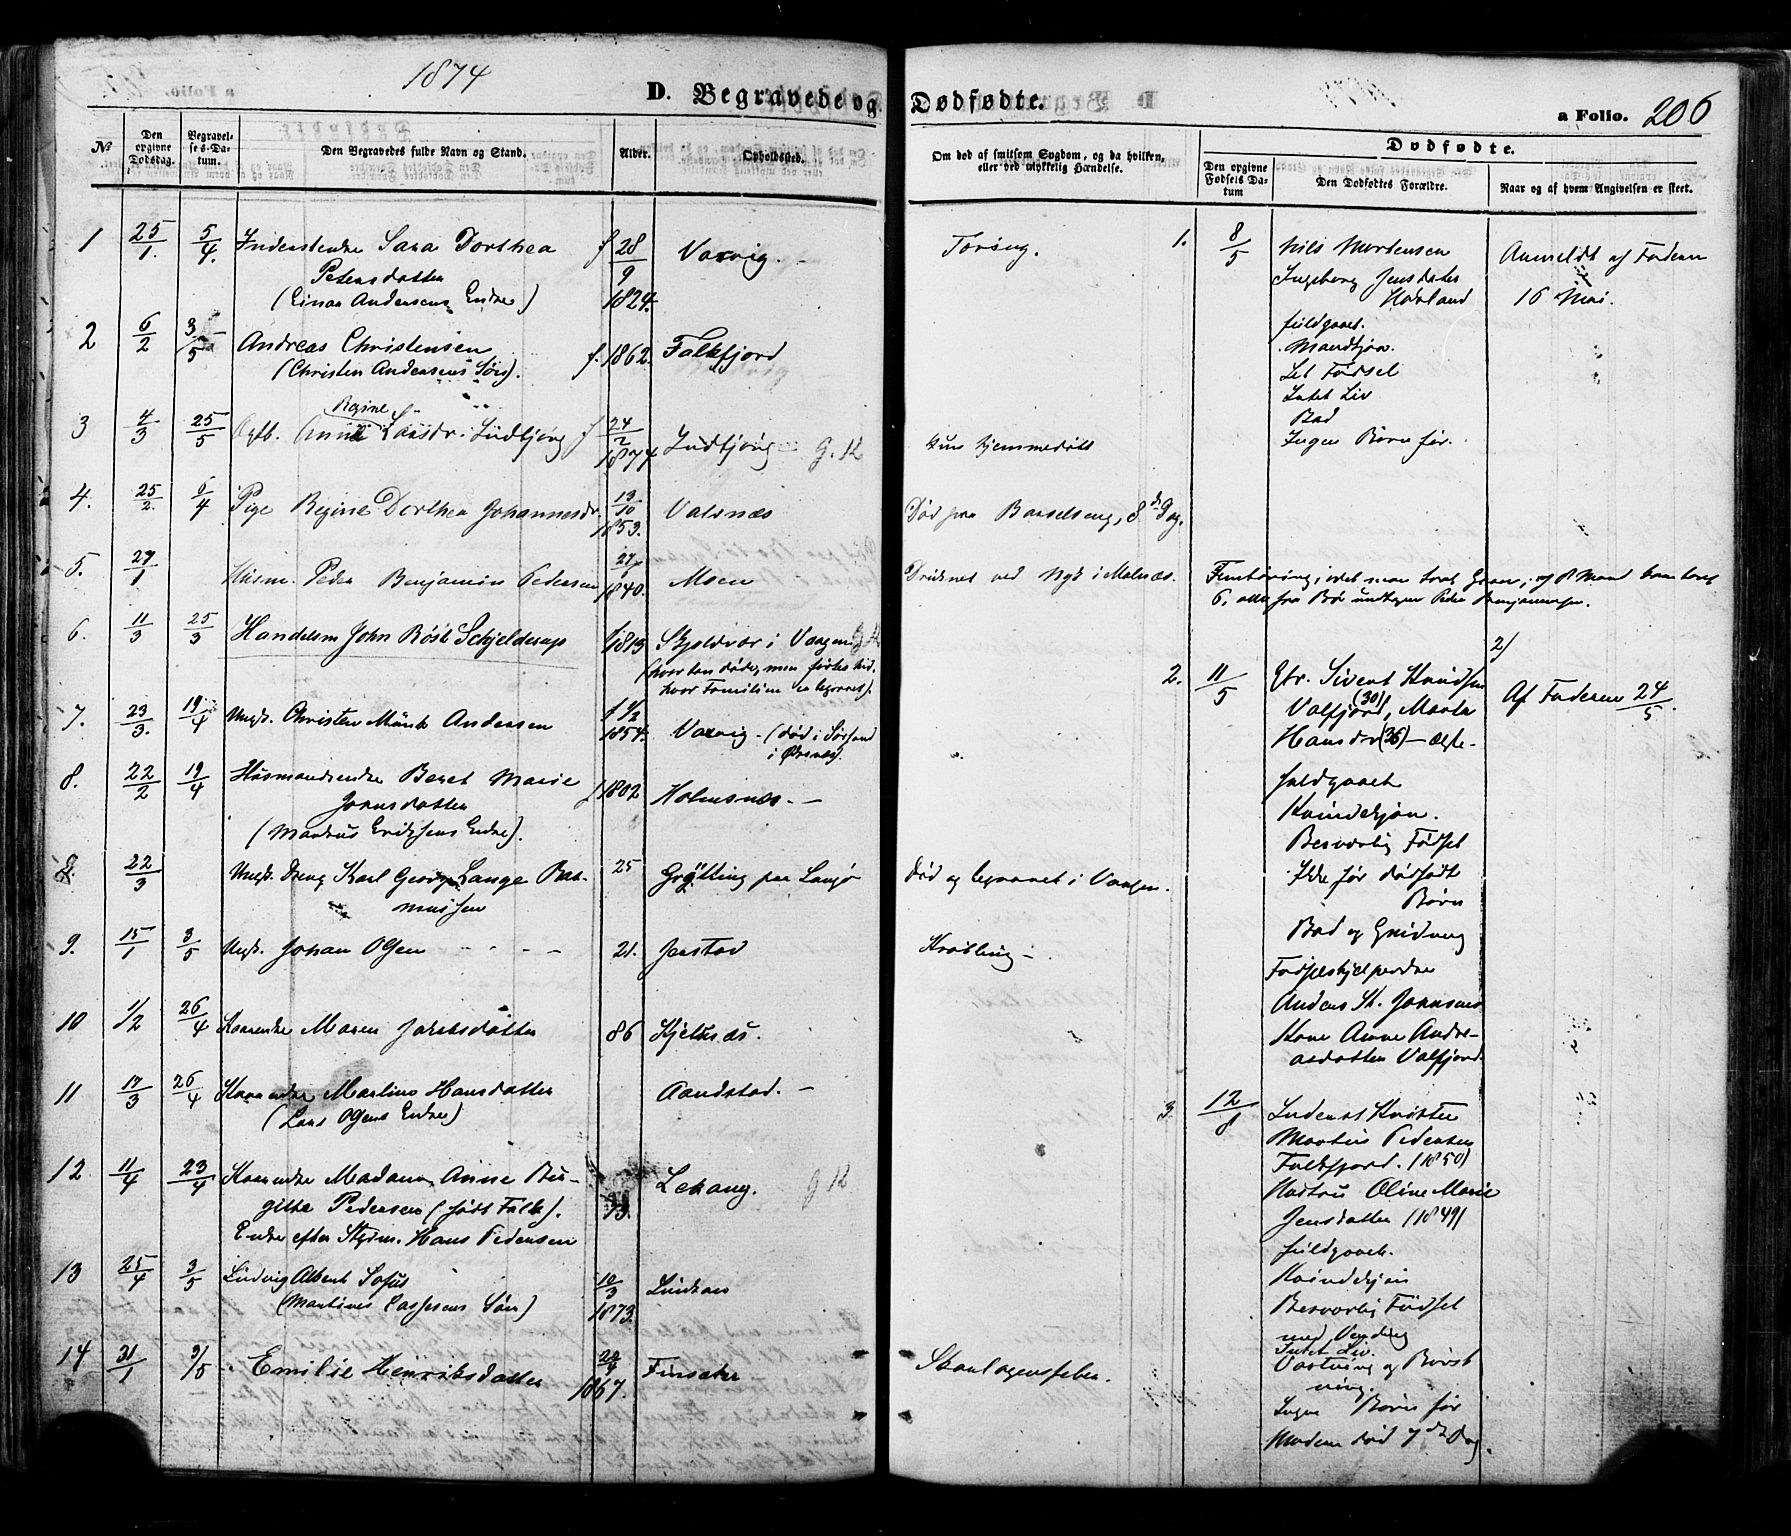 1874
D. Begravede og Dødfødte.
a Folio. 206
No
Den opgivne Dødsdag.
Begravelses-Datum.
Den Begravedes fulde Navn og Stand.
Alder.
Opholdssted.
Om død af smitsom Sygdom, og da hvilken, eller ved ulykkelig Hændelse.
Dødfødte.
Den opgivne Fødsels Datum
Den Dødfødtes Forældre.
Naar og af hvem Angivelsen er skeet.
1 25/1. 5/4. Inderstenke Sara Dorthea f 28/9 1824. Vaavig.
Petersdatter
(Einar Andersens Enke)
2 6/2 3/5 Andreas Christensen f. 1862. Falkfjord
(Christen Andersens Søn).
Regine
3 4/3 25/5 Ægtb. Anne Larsdr. Indbjörg f 24/2 1874 Indbjörg G. 12 kun hjemmedøbt
4. 25/2. 6/4 Pige Regine Dorthea Johannesdr. 13/10 1853. Valsnæs Død paa Barselseng, 8de Dag.
5. 27/1 Husm. Peder Benjamin Pedersen 1840. Moen Druknet ved Nyk i Malnæs.
6. 11/3 25/3 Handelsm John Schjelderup f 1813 Skjoldvær i Vaagen
(hvor han døde, men
hvor Familien er
7. 23/3. 19/4 Ungk. Christen Münk Andersen f 1/2 1854. Vaavig - (død i
i
8. 22/2 19/4 Husmandsenke Beret Marie f 1802 Holmsnæs. -
Joansdatter
(Markus Erichsens Enke).
8. 22/3 Ungk. Dreng Karl Georg Lange Ras- 25 Grötting paa Langø Død og begravet i Vaagen.
mussen
9. 15/1 3/5 Ungk. Johan Olsen - - - - 21. Jenstad Kvæbling -
10 1/2 26/4 Kaarenke Maren Jakobsdatter 86 Kjelsnæs.
11 17/3 26/4 Kaarenke Martine Hansdatter Aandstad. -
(Lars Olsens Enke)
12. 11/4 23/4 Kaarenke Madame Anne Bir- 73. Lekang. g 12
gitte Pedersen (født Falk).
Enke efter Styrm. Hans Pedersen
13 25/4 3/5 Ludvig Albert Sofus 10/3 1873. Lindkær
(Martines Lassesens Søn)
14 31/1 9/5 Emilie Henriksdatter 20/4 1867. Finsæter Skarlagensfeber.
Femböring, idet man
6, alle fra Bø undtagen Peder Benjaminsen.
1. 8/5 Nils Mortensen Anmeldt af Faderen
Ingeborg Jensdatter 16 Mai.
Hovland
fuldgaaet.
Mandkjøn.
Let Fødsel
Intet Liv
Bad
Ingen Børn før.
2)
2. 11/5 Gbr. Sivert Knudsen Af Faderen 24/5.
Valfjord (30), Marta
Hansdr (36) - Ægte.
fuldgaaet
Kvindekjøn.
Besværlig Fødsel
Ikke før dødfødt
Børn
Bad og Gnidning
Fødselshjelperske
Anders K. Joansens
Kone Anne Andre-
asdatter Valfjord.
3. 12/8 Inderst Kristen
Martin Pedersen
Falkfjord. (1850)
Hustru Oline Marie
Jensdatter (1849)
fuldgaaet.
Kvindekjøn
Besværlig Fødsel
med Vending
Intet Liv.
Vaskning og Børst-
ning.
Ingen Børn før
Moderen død 7de Dag.